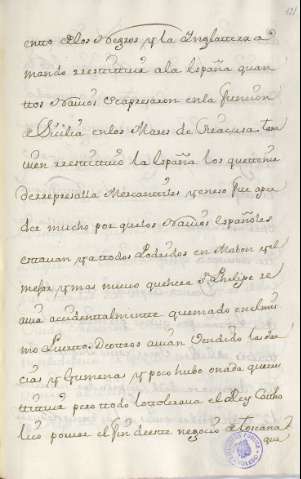 121
ento de los Negros y la Inglaterra a
mando restituir a la España quan
tos Navios apresaron en la funcion
de Sicilia en los Mares de Siracusa tam
vien restituio la España los que tenia
de represalia Mercantes y en eso fue apu
dse mucho por que los Navios Españoles
estavan ya todos Podridos en Mahon y el
mejor y mas nuevo que hera Sn Phelipe se
avia accidentalmente quemado en el mis
mo Puerto. De otros avian vendido las
cias y Gumenas y poco hubo o nada que res
tituir pero todo lo tolerava el Rey Catho
lico por ver el fin de este negocio de toscana
que